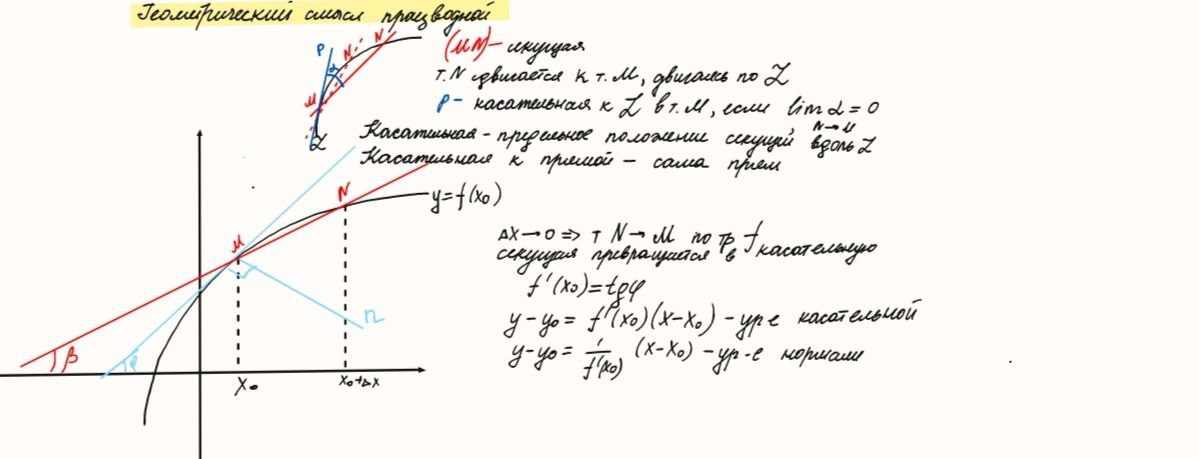 Геометрический смысл працводной
P
N
N
α
M
L
(MN) - секущая
т. N двигается к т. M, двигаясь по L
P - касательная к L в т. M, если lim α = 0
N→M
Касательная - предельное положение секущий вдоль L
Касательная к прямой - сама прям
M
N
y = f(x₀)
n
β
φ
x₀
x₀+Δx
Δx→0 => т N→M по гр f
секущая превращается в касательную
f'(x₀) = tgφ
y-y₀ = f'(x₀)(x-x₀) - ур-е касательной
y-y₀ = 1/f'(x₀) (x-x₀) - ур-е нормали